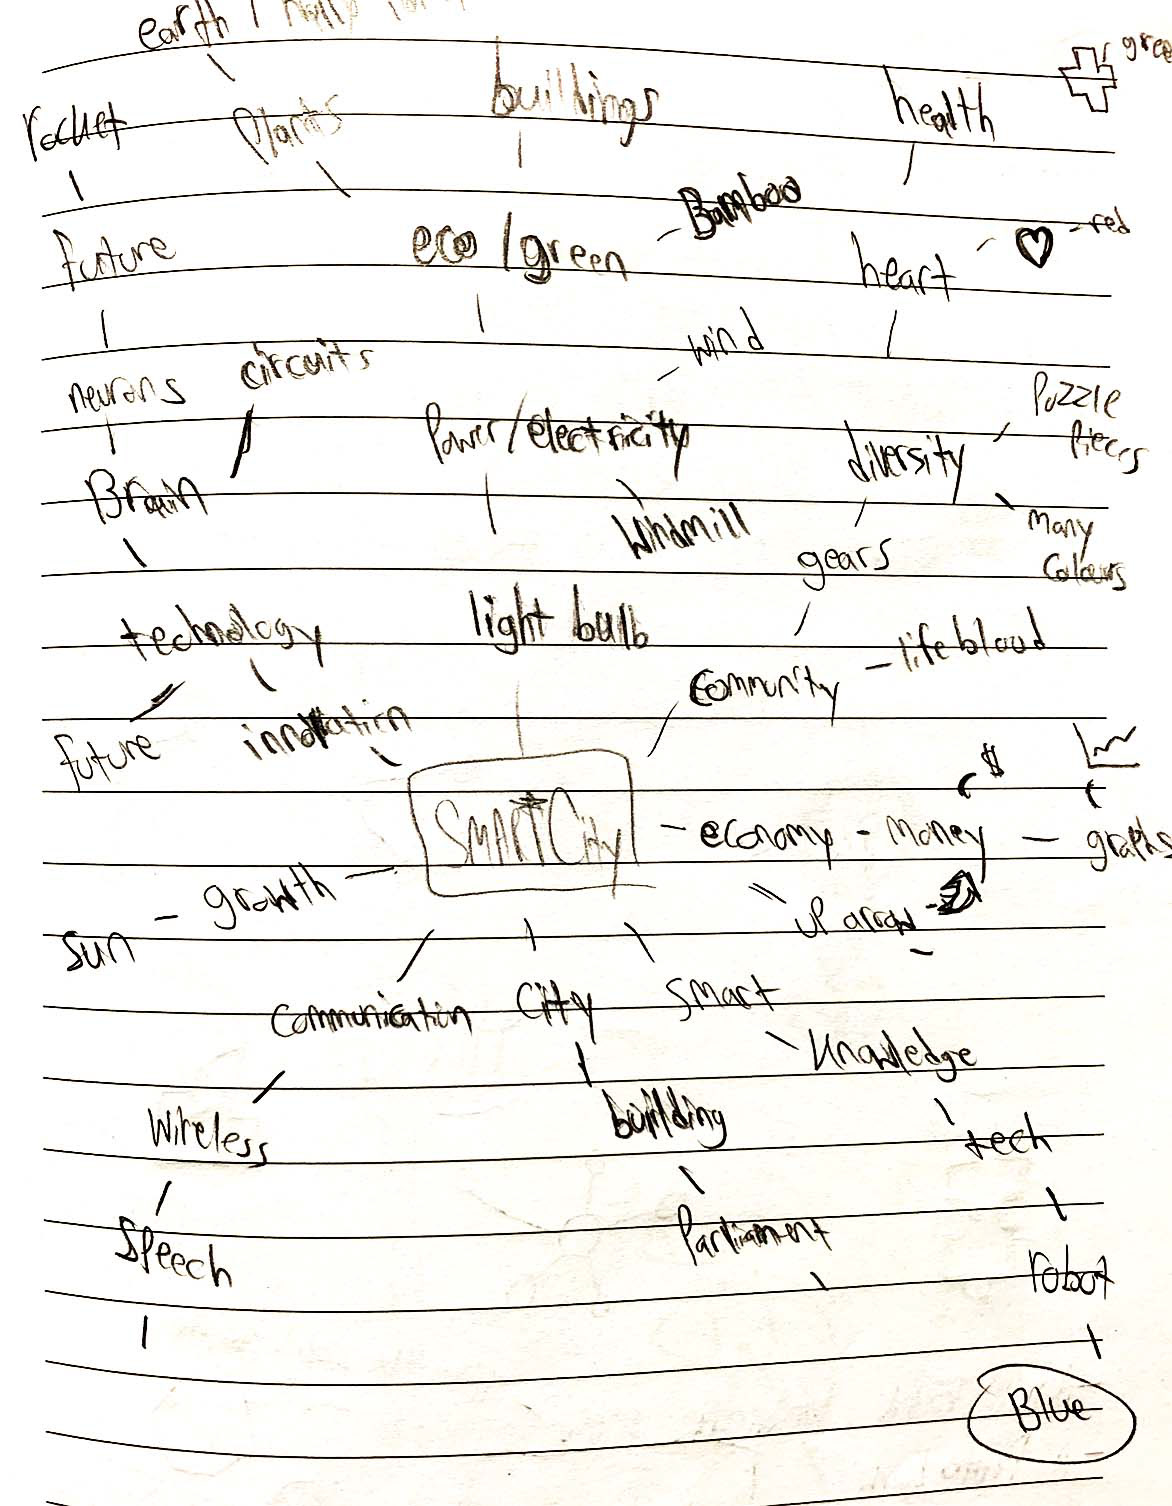 earth /
gree
rocket plants buildings health
future eco / green Bamboo heart red
neurons circuits wind Puzzle
Pieces
Power / electricity diversity
Brain windmill Many
Colours
gears
technology light bulb
community - lifeblood
future innovation
$
SMART City - economy - Money - graphs
growth up arrow
sun
communication City Smart
knowledge
Wireless building tech
Speech Parliament
robot
Blue